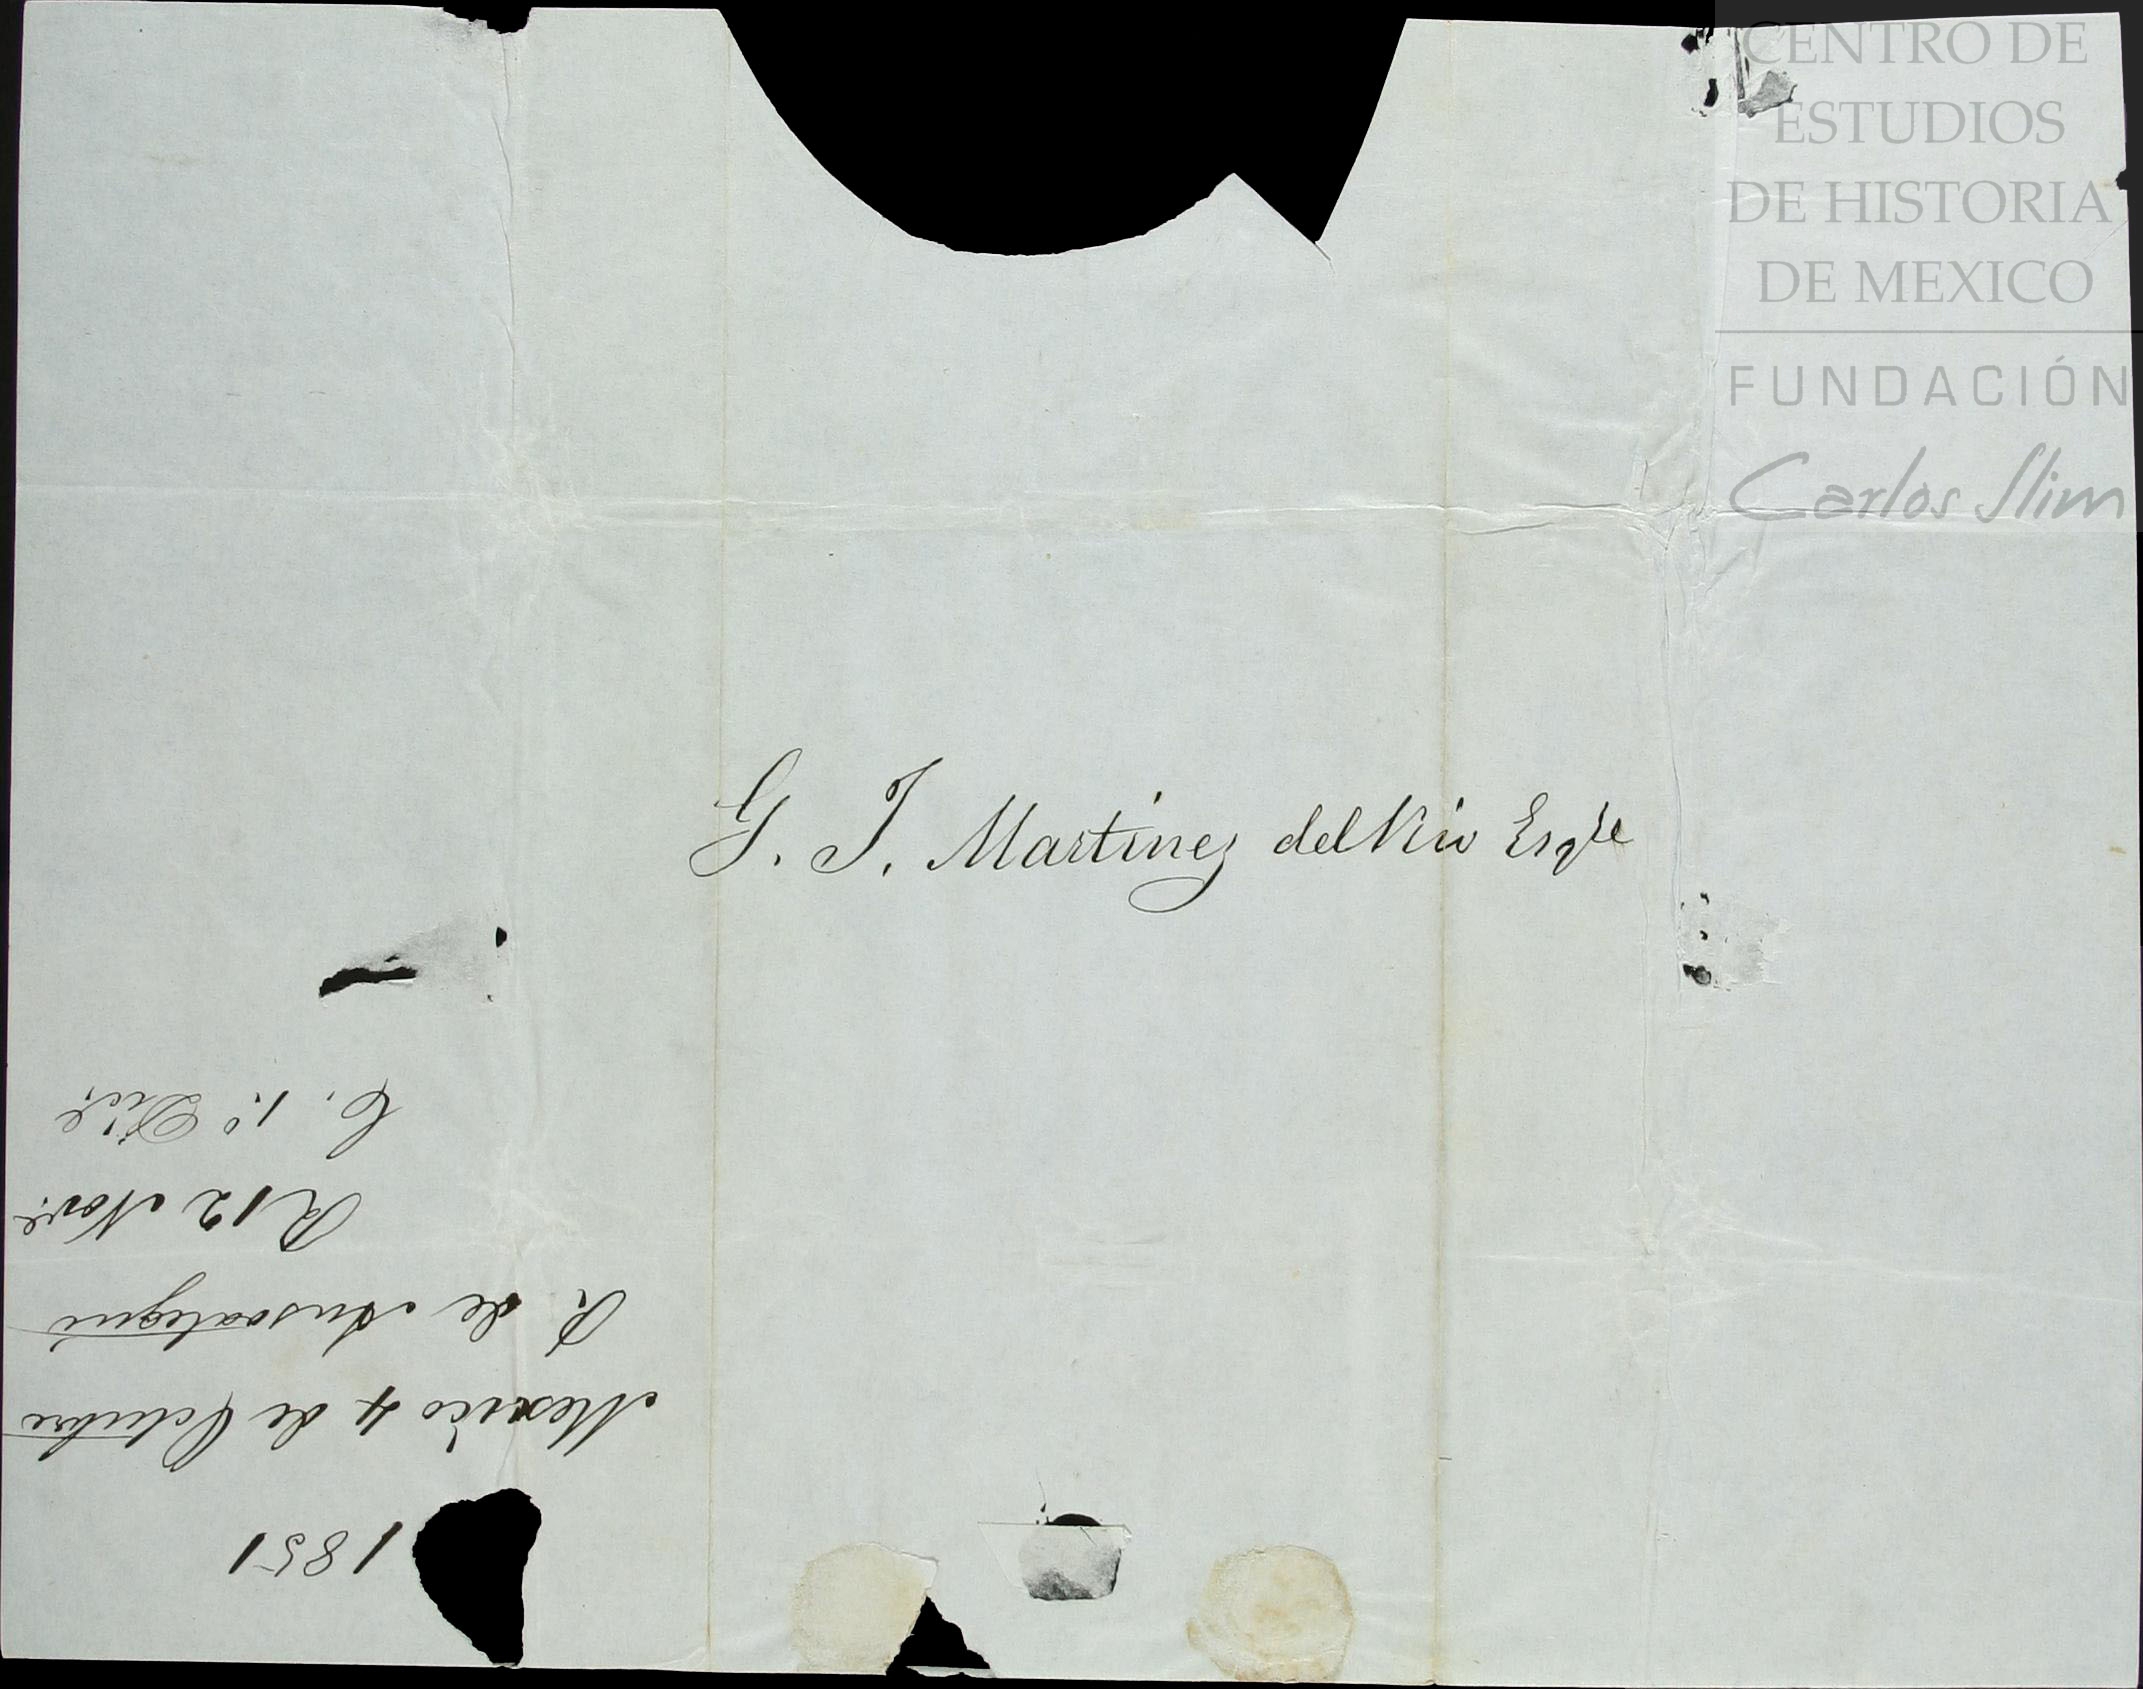 CENTRO DE
ESTUDIOS
DE HISTORIA
DE MEXICO
FUNDACIÓN
Carlos Slim
G. J. Martinez del Rio Esqre
1851
Mexico 4 de Octubre
R. de Ansoategui
R 12 Nove.
C. 1º Dice